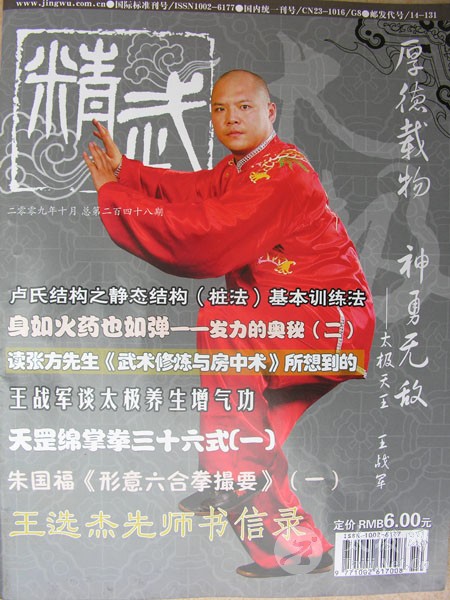 www.jingwu.com.cn●国际标准刊号/ISSN1002-6177●国内统一刊号/CN23-1016/G8●邮发代号/14-131
精武
太极
厚德载物 神勇无敌
——太极天王 王战军
二零零九年十月 总第二百四十八期
卢氏结构之静态结构（桩法）基本训练法
身如火药也如弹——发力的奥秘（二）
读张方先生《武术修炼与房中术》所想到的
王战军谈太极养生增气功
天罡绵掌拳三十六式(一)
朱国福《形意六合拳撮要》（一）
王选杰先师书信录
定价 RMB6.00元
ISSN 1002-6177
9 771002 617008